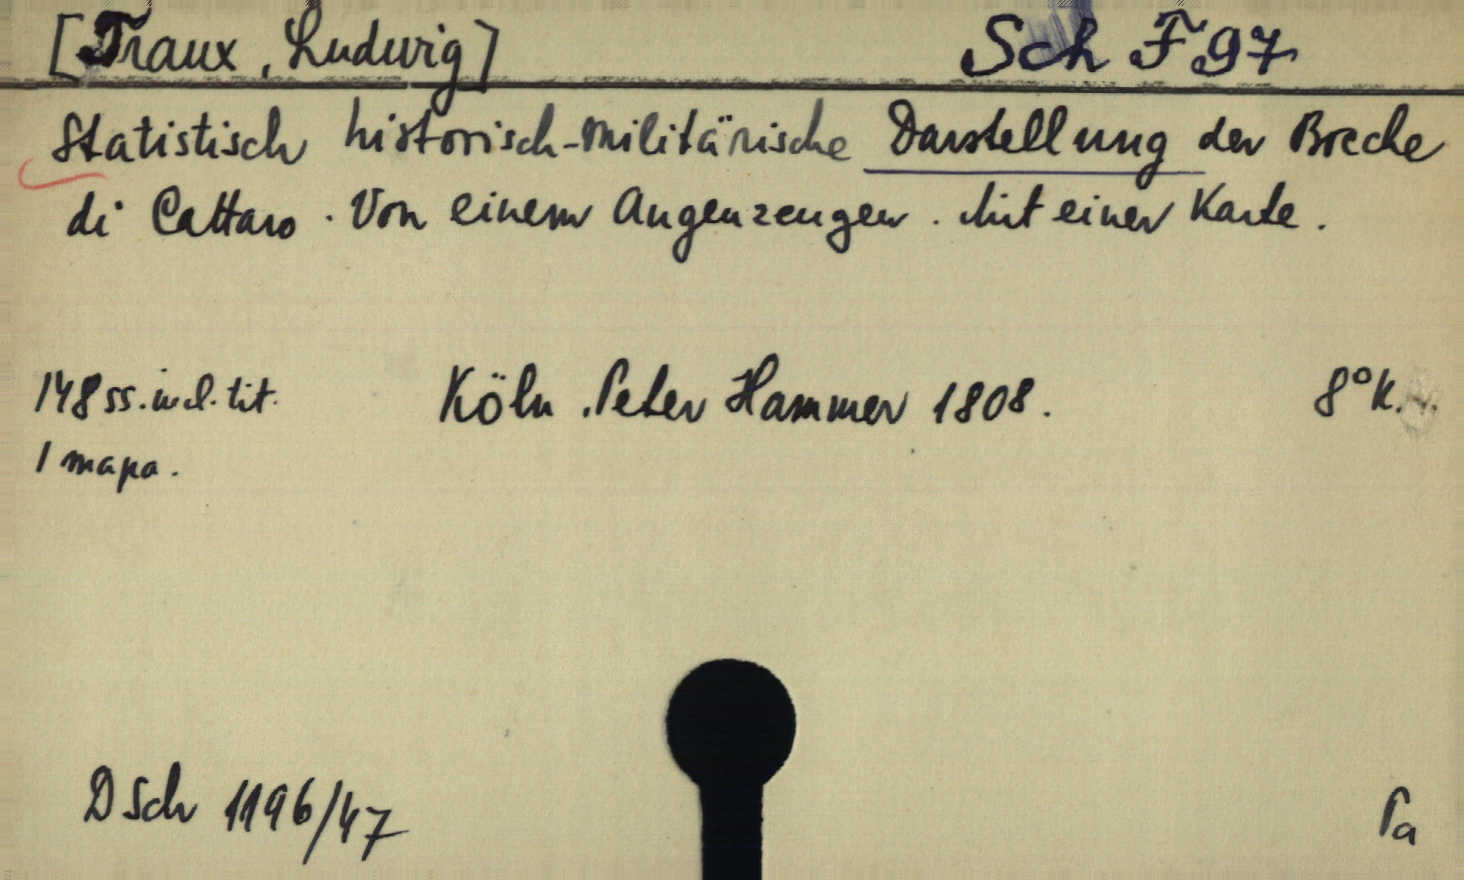 [Traux, Ludwig] Sch F 97
Statistisch historisch-militärische Darstellung der Breche
di Cattaro. Von einem Augenzeugen. Mit einer Karte.
148 ss. incl. tit. Köln. Peter Hammer 1808. 8° K.
1 mapa.
D Sch 1196/47 Pa